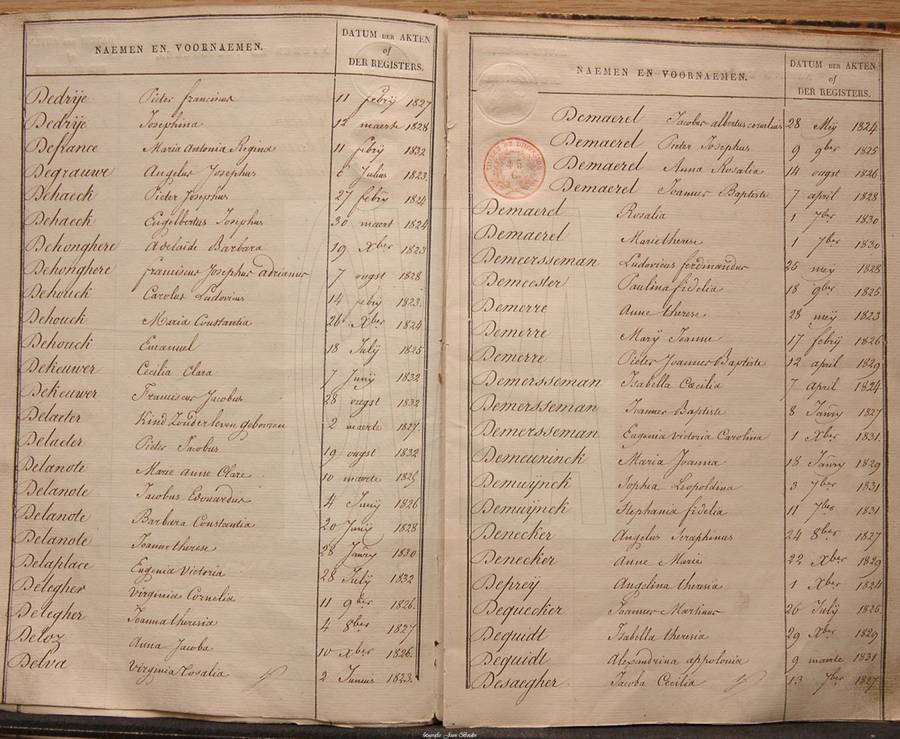 NAEMEN EN VOORNAEMEN. DATUM DER AKTEN
of
DER REGISTERS.
Dedrije Pieter franciscus 11 febrij 1827
Dedrije Josephina 12 maerte 1828
Defrance Maria Antonia Regina 11 febrij 1832
Degrauwe Angelus Josephus 6 Julius 1823
Dehaeck Pieter Josephus 27 febrij 1824
Dehaeck Engelbertus Josephus 30 maert 1824
Dehonghere Adelaide Barbara 19 Xber 1823
Dehonghere franciscus Josephus adrianus 7 ougst 1828
Dehouck Carolus Ludovicus 14 febrij 1823
Dehouck Maria Constantia 26 Xber 1824
Dehouck Emanuel 18 Julij 1825
Dekeuwer Cecilia Clara 7 Junij 1832
Dekeuwer Franciscus Jacobus 28 ougst 1832
Delaeter Kind Zonder leven geboren 2 maerte 1827
Delaeter Pieter Jacobus 19 ougst 1832
Delanote Marie Anne Clare 10 maerte 1825
Delanote Jacobus Eduardus 4 Junij 1826
Delanote Barbara Constantia 20 Junij 1828
Delanote Joanne therese 28 Janry 1830
Delaplace Eugenia Victoria 28 July 1832
Delegher Virginia Cornelia 11 9ber 1826
Delegher Joanna theresia 4 8ber 1827
Deloz Anna Jacoba 10 Xber 1826
Delva Virginia Rosalia 2 Junius 1823
NAEMEN EN VOORNAEMEN. DATUM DER AKTEN
of
DER REGISTERS.
Demaerel Jacobus albertus cornelius 28 Meij 1824
Demaerel Pieter Josephus 9 9ber 1825
Demaerel Anna Rosalia 14 ougst 1826
Demaerel Joannes Baptiste 7 april 1828
Demaerel Rosalia 1 7ber 1830
Demaerel Marie therese 1 7ber 1830
Demeersseman Ludovicus ferdinandus 25 meij 1828
Demeester Paulina fidelia 18 9ber 1825
Demerre Anne therese 28 meij 1823
Demerre Marij Joanne 17 febrij 1826
Demerre Pieter Joannes Baptiste 12 april 1829
Demersseman Isabella Cæcilia 7 april 1824
Demersseman Joannes Baptiste 8 Janry 1827
Demersseman Eugenia victoria Carolina 1 Xber 1831
Demeuninck Maria Joanna 18 Janry 1829
Demuijnck Sophia Leopoldina 3 7ber 1831
Demuijnck Stephania fidelia 11 7ber 1831
Denecker Angelus Seraphinus 24 8ber 1827
Denecker Anne Marie 22 Xber 1829
Depreij Angelina theresia 1 Xber 1824
Dequecker Joannes Martinus 26 July 1825
Dequidt Isabella theresia 29 Xber 1829
Dequidt Alexandrina appolonia 9 maerte 1831
Desaegher Jacoba Cecilia 13 7ber 1827